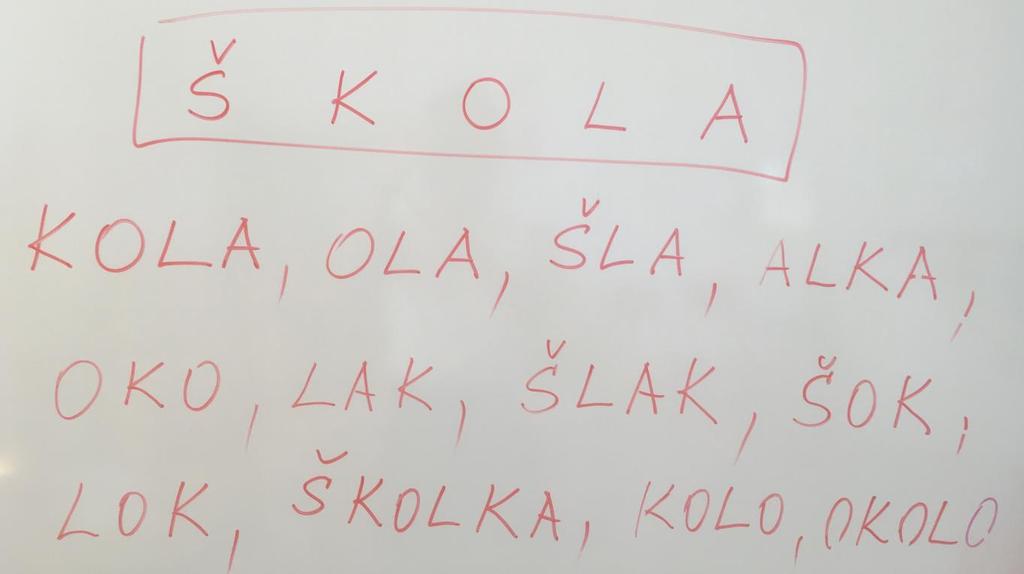 Š K O L A
KOLA, OLA, ŠLA, ALKA,
OKO, LAK, ŠLAK, ŠOK,
LOK, ŠKOLKA, KOLO, OKOLO